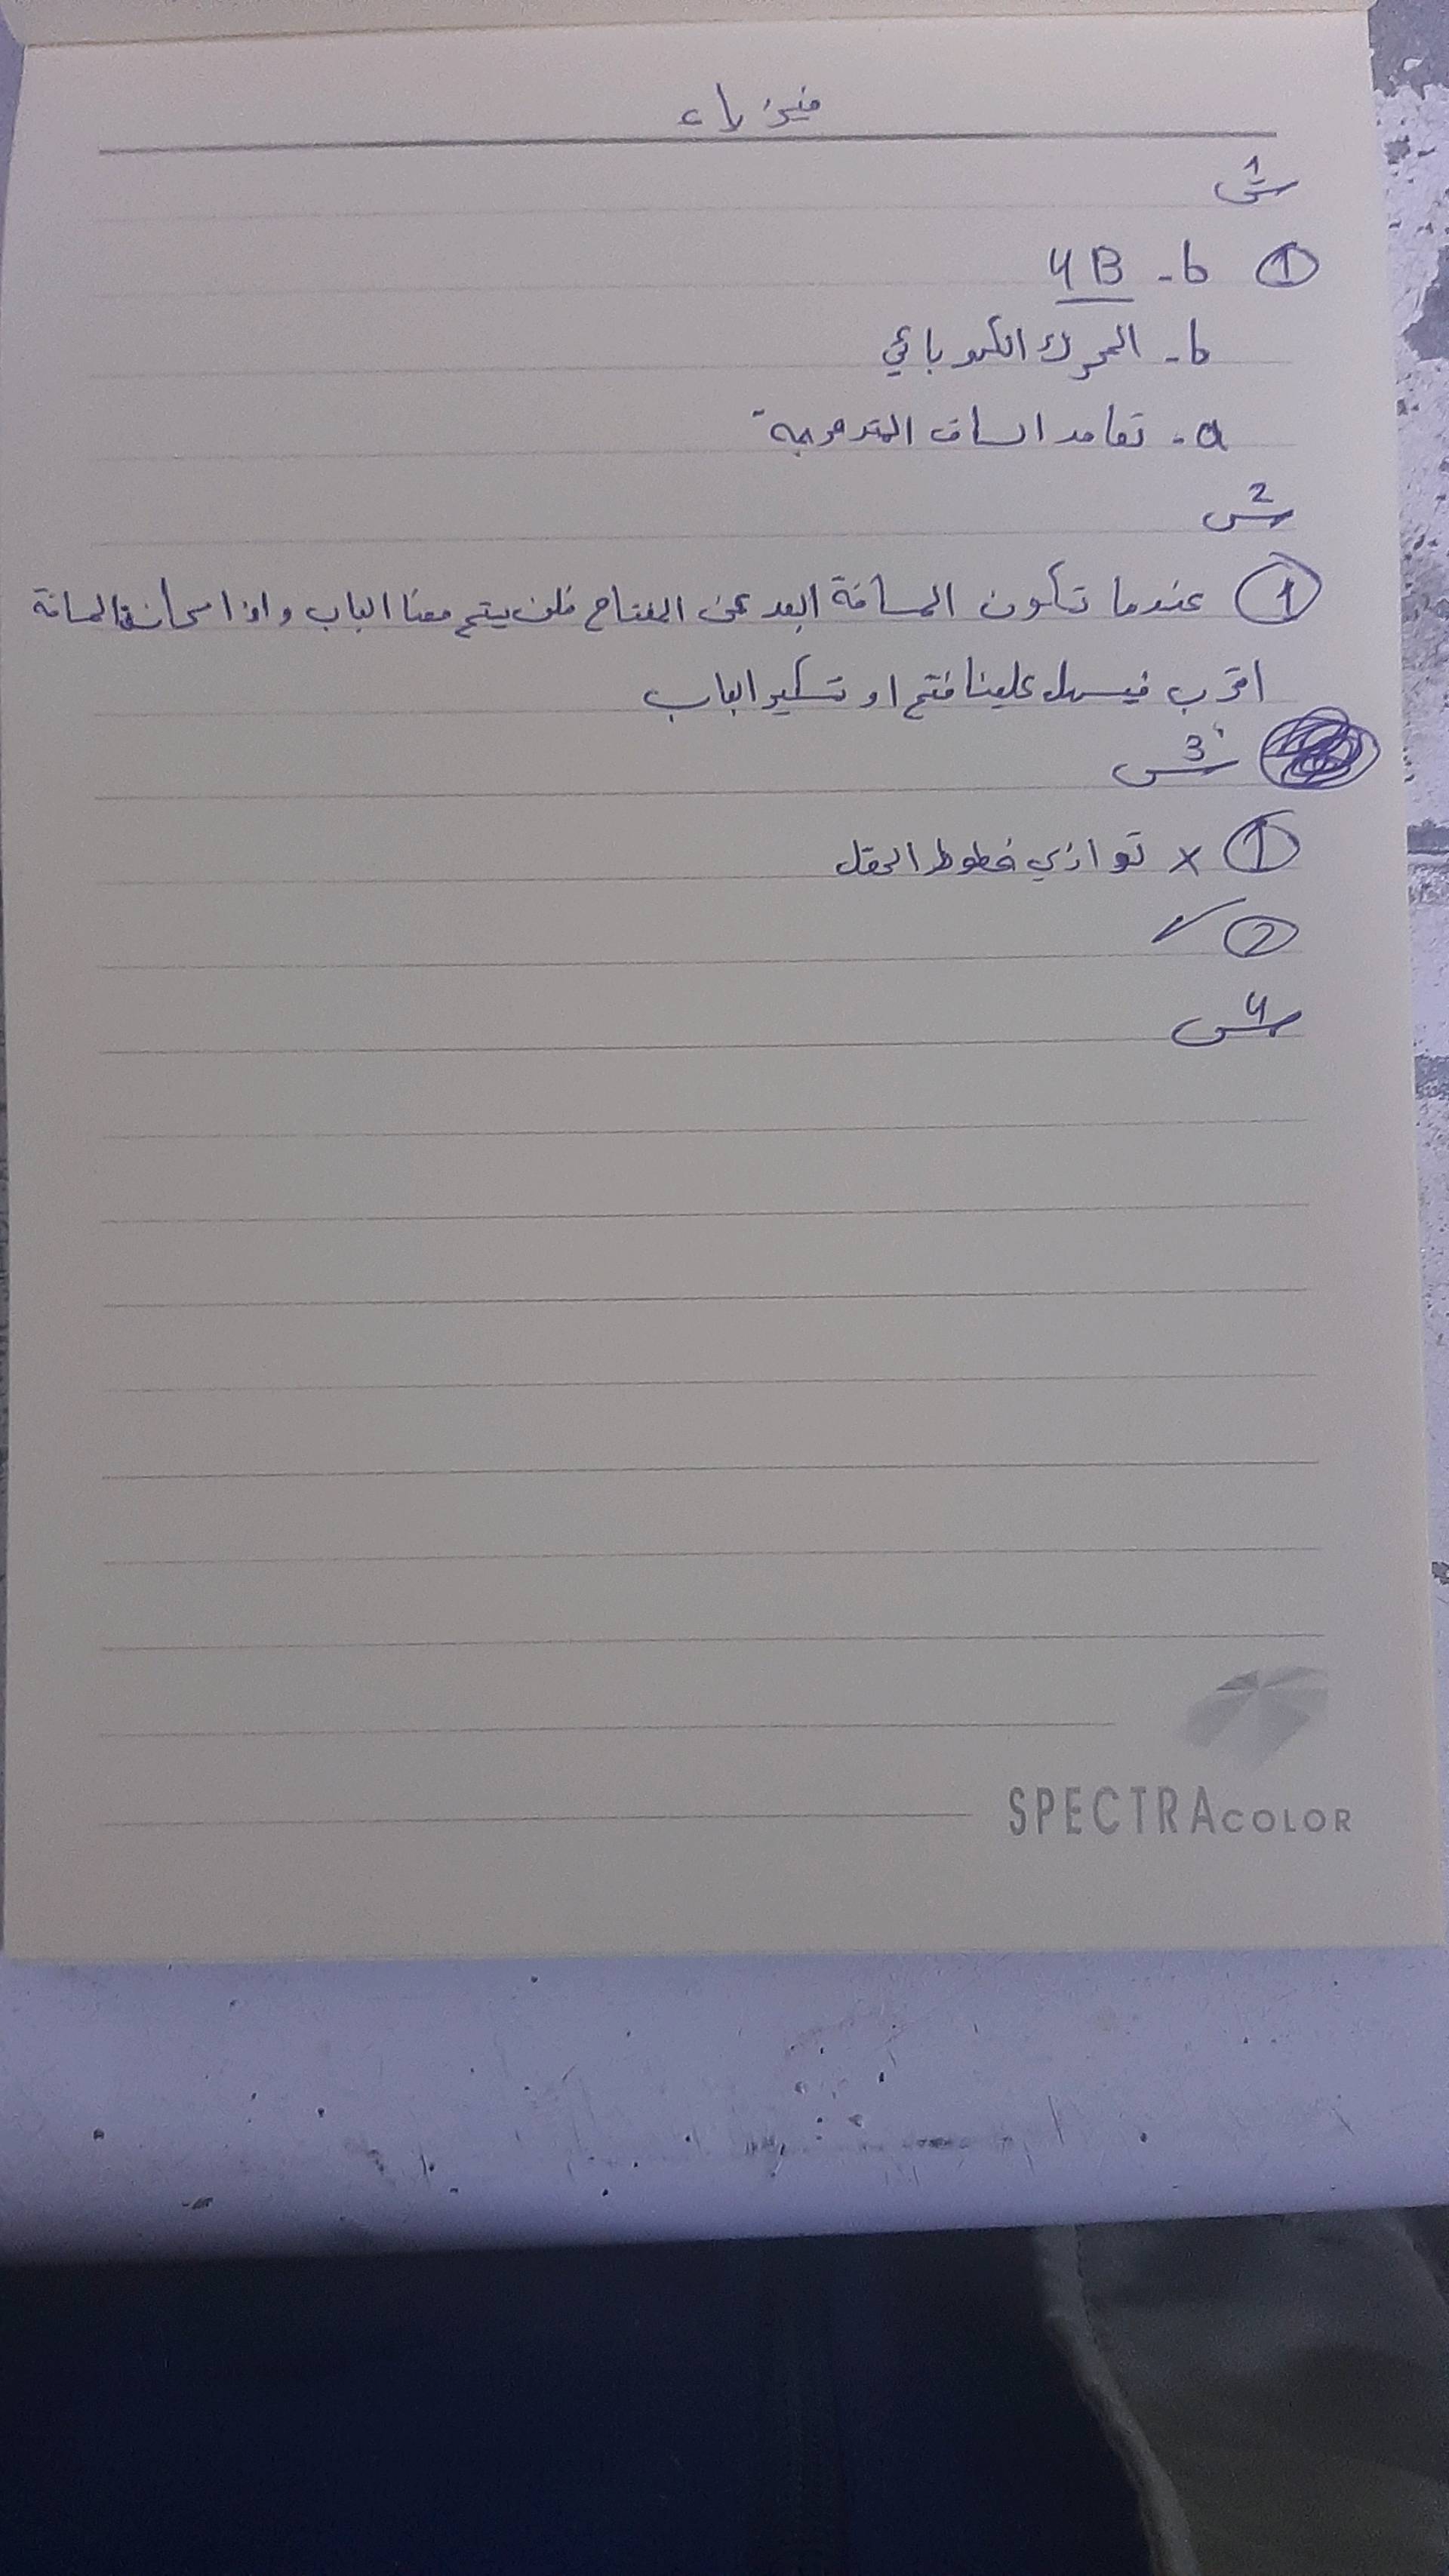 فيزياء
س1
① b - 4B
b - المحرك الكهربائي
a - تعامد الساق المتدحرجة
س2
① عندما تكون المسافة ابعد عن المفتاح فلن يتم معنا الباب واذا كانت المسافة
اقرب فيسهل علينا فتح او تسكير الباب
س3
① × توازي خطوط الحقل
② ✓
س4
SPECTRACOLOR